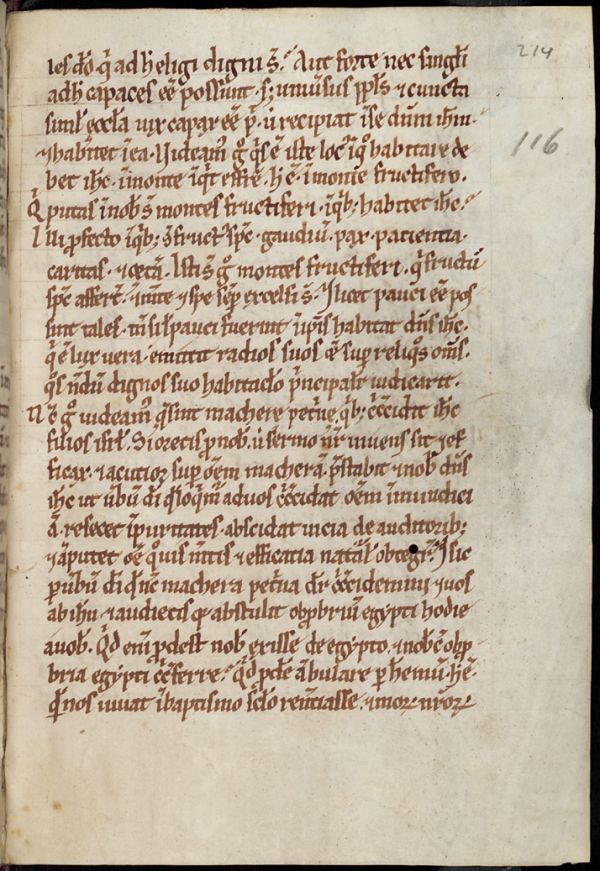 214
116
les dõo q̃ ad h̃ eligi digni s̃. Aut forte nec singli
adh̃ capaces eẽ possunt. s; uniũsus ppl̃s ⁊ cuncta
simł eccl̃a vix capax eẽ p̃. ũ recipiat ĩ se dñm ih̃m.
⁊ habitet ĩ ea. Videam᷒ g̊ q̃s ẽ iste loc᷒ ĩ q̊ habitare de
bet ih̃c. ĩ monte ĩq̃t effrẽ. h̃ ẽ. ĩ monte fructifero.
Q̃ putas ĩ nob̃ s̃ montes fructiferi. ĩ q̃b; habitet ih̃c.
Illi pfecto ĩ q̃b; ẽ fruct᷒ sp̃c. gaudiũ. pax. patientia.
caritas. ⁊ cet̃a. Isti s̃ g̊ montes fructiferi. q̃ fructũ
sp̃c affert̃. ĩ mẽte ⁊ spe sẽp excelsi s̃. ⁊ licet pauci eẽ pos
sint tales. tñ si ł pauci fuerint ĩ ip̃is habitat dñs ih̃c.
q̃ ẽ lux vera. emittit radios suos ẽ sup reliq̊s om̃s.
q̊s nõdũ dignos suo habitacło p̃ncipalit̃ iudicarit.
Nẽ g̊ uideam᷒ q̃ sint machere pet̃ne q̃b; c̃cũcidit ih̃c
filios isrł. Si oretis p nob̃. ũ sermo nr̃ vivens sit ⁊ ef
ficax. ⁊ acutior sup õem macherã. p̃stabit ⁊ nob̃ dñs
ih̃c ut ũbũ dĩ q̃ loq̃m᷒ ad uos c̃cũcidat õem ĩmundici
ã. resecet ĩpuritates. abscidat vicia de auditorib;
⁊ ãputet õe q̊ uis m̃tis ⁊ efficatia natał obtegit̃. ⁊ sic
p ũbũ dĩ q̃ hc̃ machera pet̃na dr̃ c̃cũcidemini ⁊ uos
ab ih̃u ⁊ audietis q abstulit obpbriũ egypti hodie
a uob̃. Q̃d enĩ pdest nob̃ exisse de egypto. ⁊ nob̃ cũ obp
bria egypti c̃cũferre. Q̃d pdẽ ãbulare p heremũ. h̃ ẽ.
q̃d nos iuuat ĩ baptismo scło renũtiasse. ⁊ moꝝ nr̃oꝝ